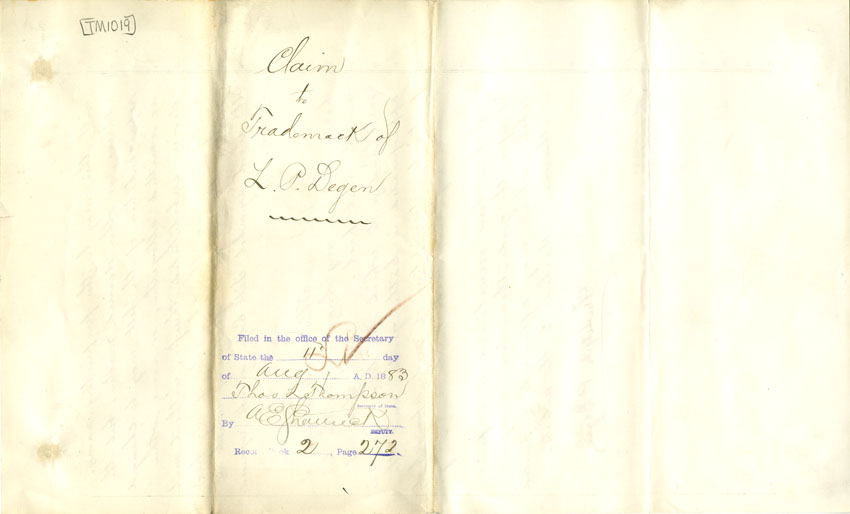 [TM1019]
Claim
to
Trademark of
L. P. Degen
Filed in the office of the Secretary
of State the 11th day
of Aug A. D. 1883
Thos L Thompson
Secretary of State.
By A E
DEPUTY.
Record Book 2, Page 272.